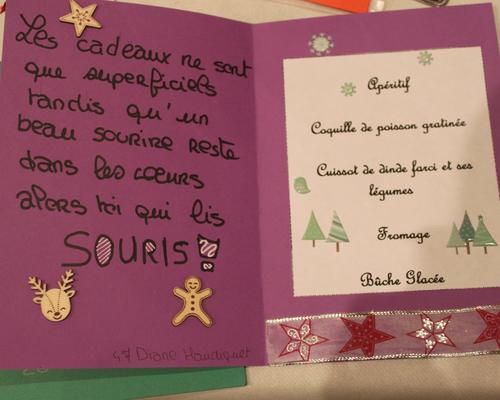 Les cadeaux ne sont
que superficiels
tandis qu'un
beau sourire reste
dans les cœurs
alors toi qui lis
SOURIS !
47 Diane
Apéritif
Coquille de poisson gratinée
Cuissot de dinde farci et ses
légumes
Fromage
Bûche Glacée